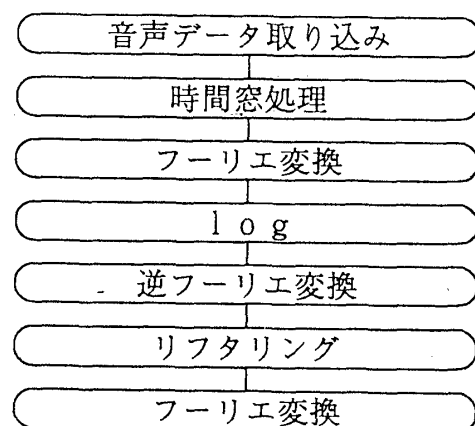 音声データ取り込み
時間窓処理
フーリエ変換
log
逆フーリエ変換
リフタリング
フーリエ変換